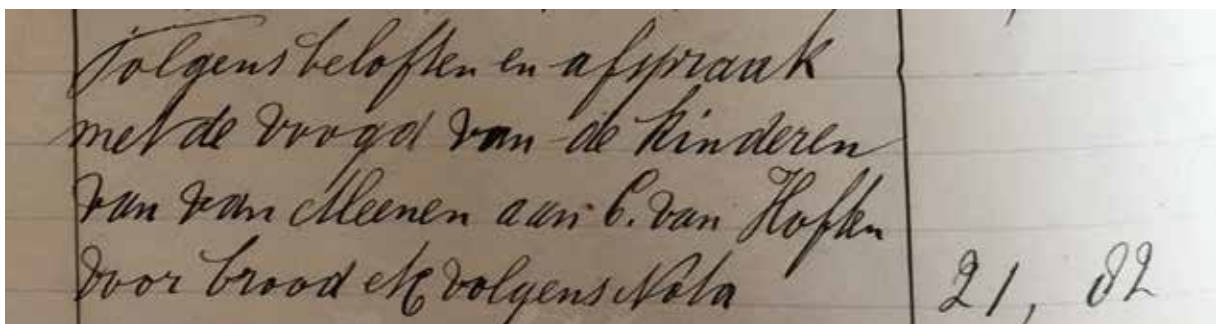 Volgens beloften en afspraak
met de Voogd van de Kinderen
van van Meenen aan C. van Hoften
voor brood etc volgens Nota 21, 82